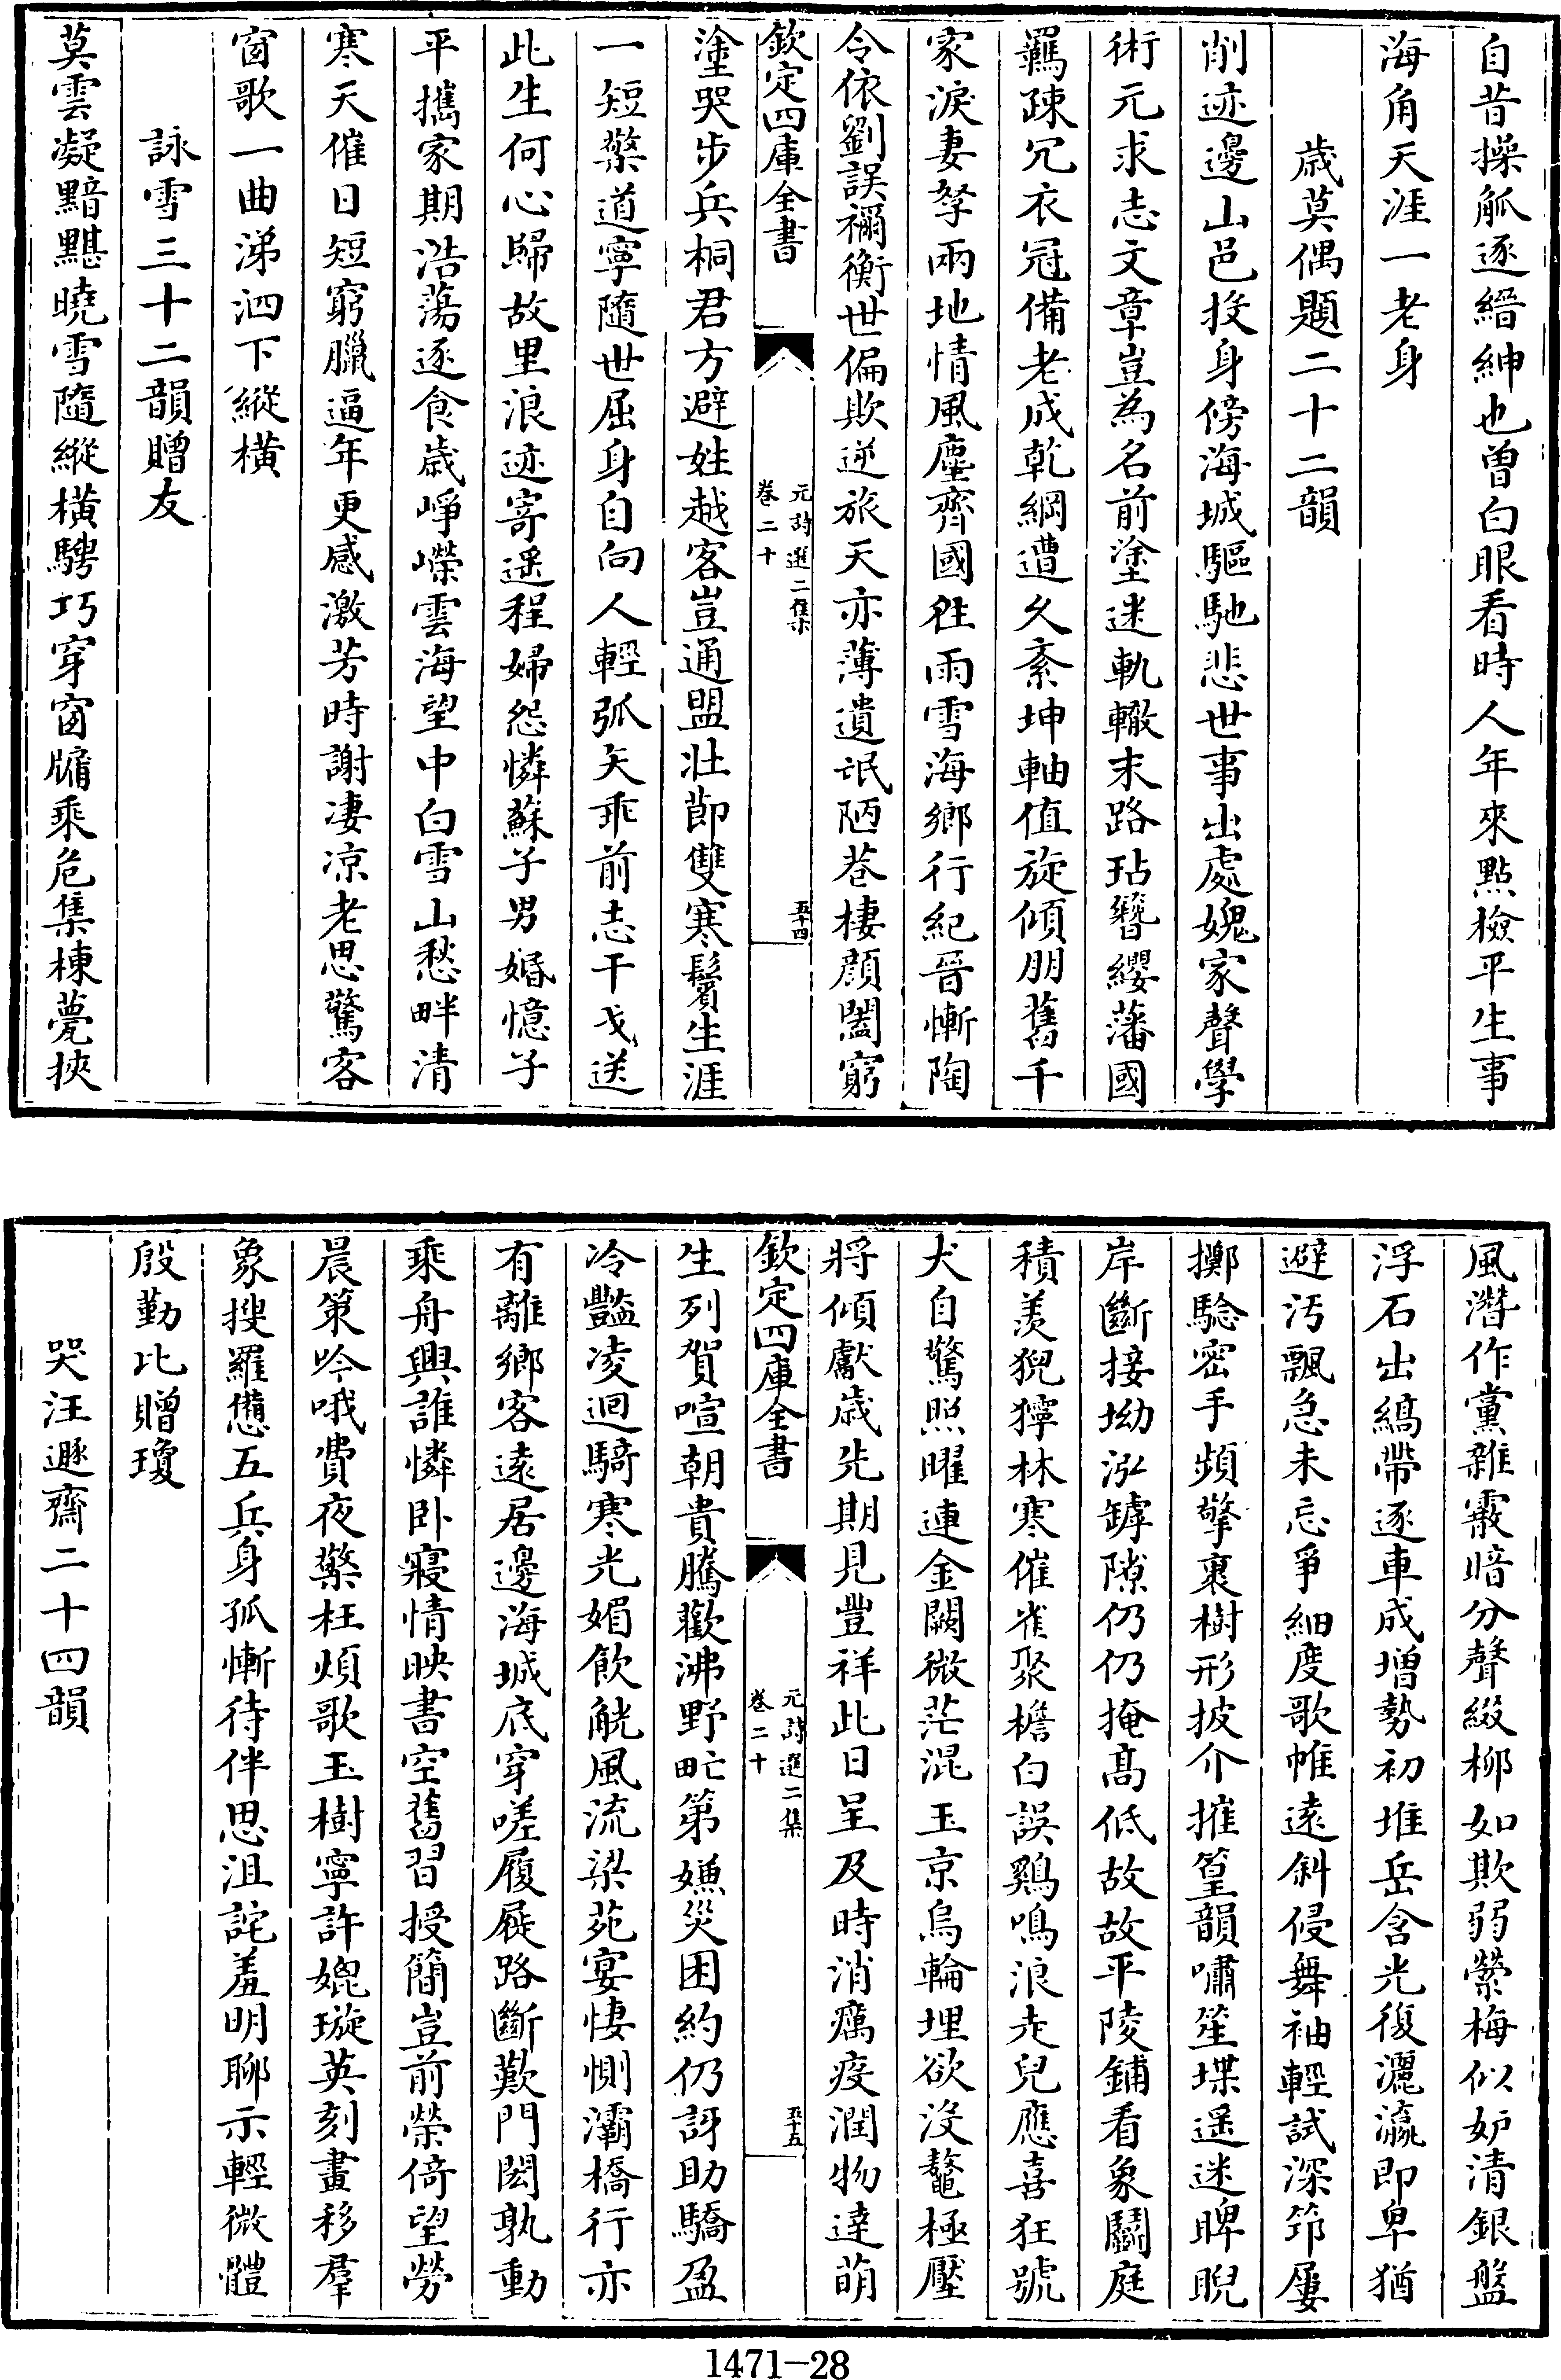 自昔操觚逐縉紳也曾白眼看時人年來點檢平生事
海角天涯一老身
歲莫偶題二十二韻
削迹邊山邑投身傍海城驅馳悲世事出處媿家聲學
術元求志文章豈為名前塗迷軌轍末路玷簪纓藩國
羈疎冗衣冠備老成乾綱遭久紊坤軸值旋傾朋舊千
家淚妻孥兩地情風塵齊國往雨雪海鄉行紀晉慚陶
令依劉誤禰衡世偏欺逆旅天亦薄遺氓陋巷棲顔闔窮
欽定四庫全書
元詩選二集
卷二十
五十四
塗哭步兵桐君方避姓越客豈通盟壯節雙寒鬢生涯
一短檠道寧隨世屈身自向人輕弧矢乖前志干戈送
此生何心歸故里浪迹寄遥程婦怨憐蘇子男婚憶子
平攜家期浩蕩逐食歲崢嶸雲海望中白雪山愁畔清
寒天催日短窮臘逼年更感激芳時謝凄凉老思驚客
窗歌一曲涕泗下縱橫
詠雪三十二韻贈友
莫雲凝黯黮曉雪隨縱橫騁巧穿窗牖乘危集棟甍挾
風潛作黨雜霰暗分聲綴柳如欺弱縈梅似妒清銀盤
浮石出縞帶逐車成增勢初堆岳含光復灑瀛即卑猶
避汚飄急未忘爭細度歌帷遠斜侵舞袖輕試深筇屢
擲騐密手頻擎裹樹形披介摧篁韻嘯笙堞遥迷睥睨
岸斷接坳泓罅隙仍仍掩高低故故平陵鋪看象鬬庭
積羨猊獰林寒催雀聚檐白誤鷄鳴浪走兒應喜狂號
犬自驚照曜連金闕微茫混玉京烏輪埋欲沒鼇極壓
將傾獻歲先期見豐祥此日呈及時消癘疫潤物達萌
欽定四庫全書
元詩選二集
卷二十
五十五
生列賀喧朝貴騰歡沸野甿第嫌災困約仍訝助驕盈
冷豔凌迴騎寒光媚飲觥風流梁苑宴悽惻灞橋行亦
有離鄉客遠居邊海城底穿嗟履屐路斷歎門閎孰動
乘舟興誰憐卧寢情映書空舊習授簡豈前榮倚望勞
晨策吟哦費夜檠枉煩歌玉樹寧許媲璇英刻畫移羣
象搜羅憊五兵身孤慚待伴思沮詫羞明聊示輕微體
殷勤比贈瓊
哭汪遯齋二十四韻
1471-28